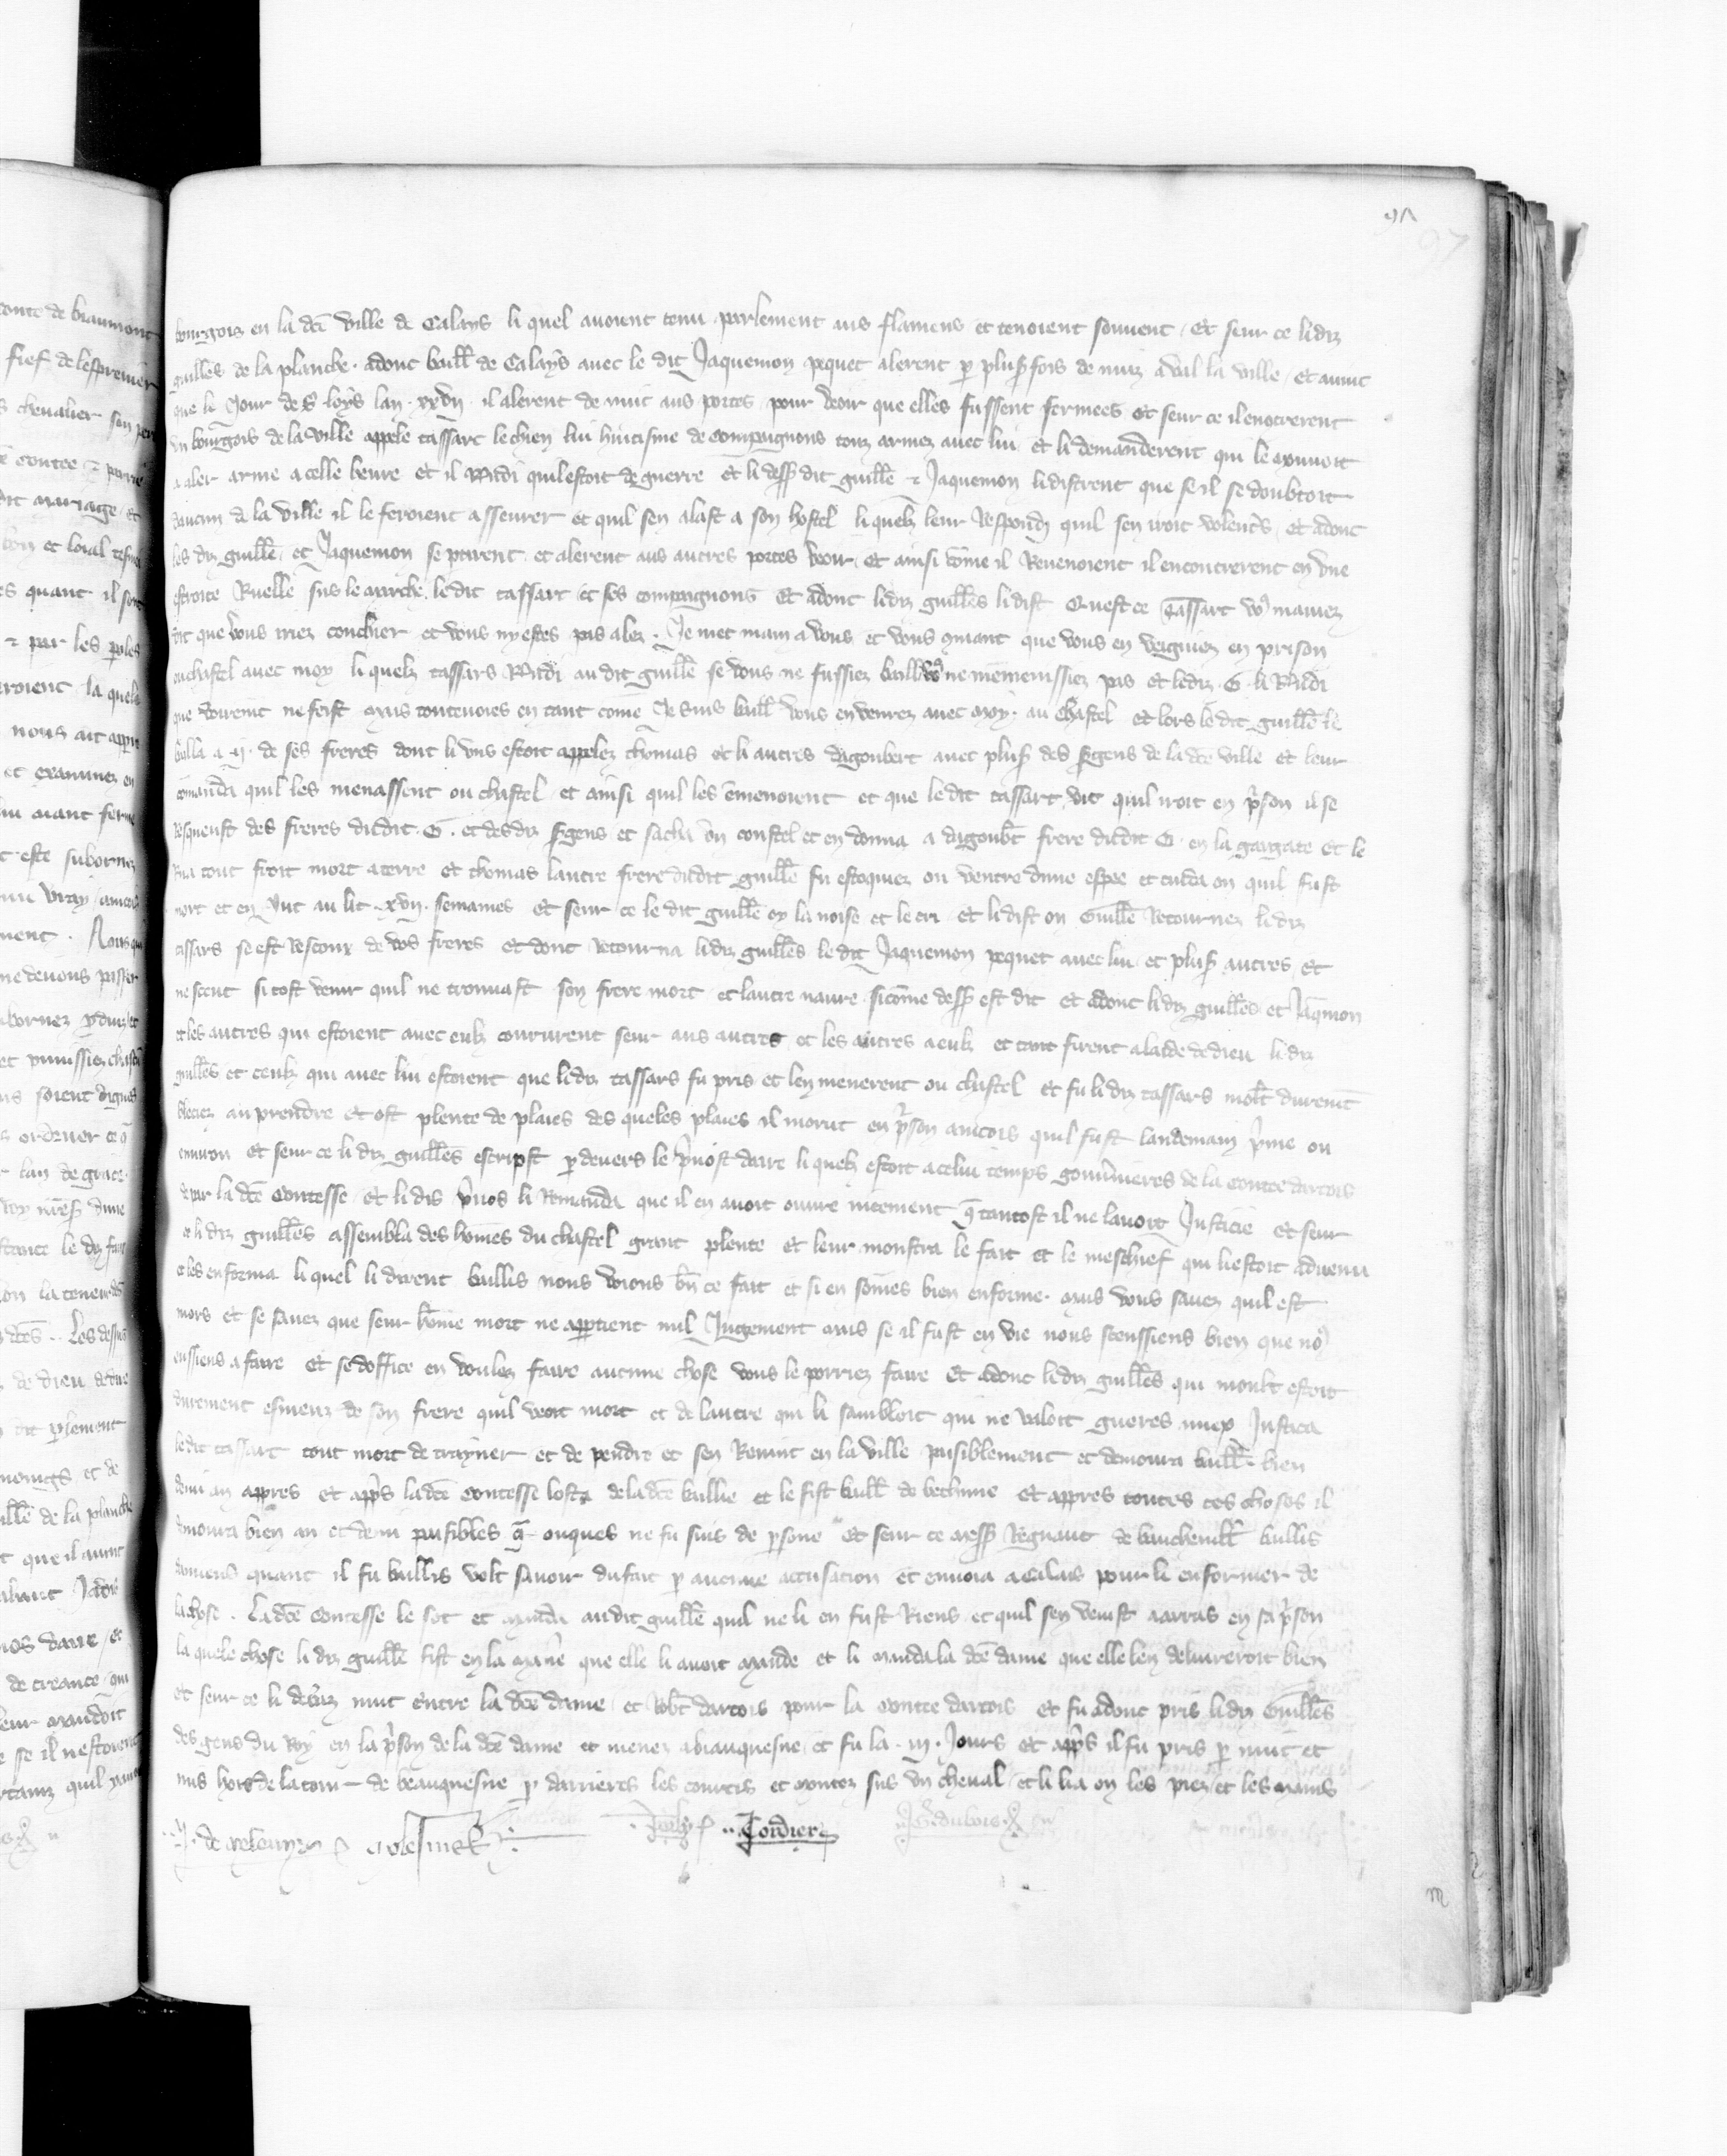 97
bourgois en la dce ville de Calays li quel avoient tenu parlement aus flamens et tenoient souvent, Et seur ce lidiz
guilles de la planche. adonc baill de Calays avec le dit Jaquemon pequet alerent p plus fois de nuiz aval la ville, et avint
que le Jour de s. loys lan. xxvij. il alerent de nuit aus portes pour veoir que elles fussent fermees et seur ce il encotrerent
un bourgois de la ville appele tassart le chien lui huitisme de compaignons touz armez avec lui et li demanderent qui le mouvoit
a aler arme a celle heure et il Rndi quil estoit de guerre et li dess dit guille & Jaquemon li distrent que se il se doubtoit
daucun de la ville il le feroient asseurer et quil sen alast a son hostel li quelz leur Respondi quil sen iroit volent's, et adonc
les diz guille, et Jaquemon se ptirent et alerent aus autres portes veoir, et ainsi come il Revenoient il encontrerent en une
estroite Ruelle sus le marche, le dit tassart et ses compaignons Et adonc lediz guilles li dist Quest ce tassart vo9 maviez
dit que vous iriez couchier et vous ny estes pas alez. Je met main a vous et vous qmant que vous en veigniez en prison
ou chastel avec moy li quelz tassars Rndi au dit guille se vous ne fussiez baill vo9 ne men menissiez pas et lediz .G. li Rndi
que voirement ne feist mais toutevoies en tant come Je suis baill vous en venrez avec moy. au chastel et lors le dit guille le
bailla a .ij. de ses freres dont li uns estoit appelez thomas et li autres dagoubert avec plus des sgens de la dce ville et leur
comanda quil les menassent ou chastel et ainsi quil les emenoient et que le dit tassart vit quil iroit en pson il se
Resqueust des freres dudit .G. et des diz sgens et sacha un coustel et en donna a dagoubt frere dudit G. en la gargate et le
Rua tout froit mort a terre et thomas lautre frere dudit guille fu estoquiez ou ventre dune espee et cuida on quil fust
mort et en Jut au lit .xvij. semaines et seur ce le dit guille oy la noise et le cri et li dist on Guille Retournez lediz
tassars se est Rescoux de vos freres et dont Retourna lidiz guilles le dit Jaquemon pequet avec lui et plus autres, et
ne sceut si tost venir quil ne trouvast son frere mort et lautre navre. sicome dess est dit et adonc lidiz guilles et Jaqmon
et les autres qui estoient avec eulz coururent seur aus autres et les autres a eulz et tant firent a laide de dieu lidiz
guilles et ceulz qui avec lui estoient que lidiz tassars fu pris et len menerent ou chastel et fu lidiz tassars molt durement
bleciez au prendre et ost plente de plaies des queles plaies il morut en pson aincois quil fust landemain pme ou
environ et seur ce li diz guilles escripst p devers le pvost daire li quelz estoit a celui temps gouvneres de la contee dartois
de par la dce Contesse, Et li dis pvos li Rmanda que il en avoit ouvre nicement q tantost il ne lavoit Justicie et seur
ce li diz guilles assembla des homes du chastel grant plente et leur monstra le fait et le meschief qui li estoit advenu
et les enforma li quel li dirent baillis nous veons bn ce fait et si en somes bien enforme. mais vous savez quil est
mors et se savez que seur home mort ne apptient nul Jugement mais se il fust en vie nous sceussiens bien que no9
eussiens a faire et se doffice en voulez faire aucune chose vous le porriez faire Et adonc lediz guilles qui moult estoit
durement esmeuz de son frere quil veoit mort et de lautre qui li sambloit qui ne valoit gueres miex Justica
ledit tassart tout mort de trayner et de pendre et sen Revint en la ville paisiblement et demoura baill. bien
demi an appres et app's la dce Contesse losta de la dce baillie et le fist baill de bethune et appres toutes ces choses il
demoura bien an et demi paisibles q onques ne fu suis de psone Et seur ce mess Regnaut de bauchevill baillis
damiens quant il fu baillis volt savoir du fait p aucune accusation et envoia a Calais pour li enformer de
la chose. La dce Contesse le sot et manda au dit guille quil ne li en fust Riens, et quil sen venist a arras en sa pson
la quele chose li diz guille fist en la mane que elle li avoit mande et li manda la dce dame que elle len deliverroit bien
et seur ce li debaz mut entre la dce dame, et Robt dartois pour la Contee dartois et fu adonc pris li diz Guilles
des gens du Roy en la pson de la dce dame et menez a biauquesne, et fu la .iij. Jours et app's il fu pris p nuit et
mis hors de la tour de beauquesne p darrieres les courtis et montez sus un cheval et li lia on les piez et les mains
Cordier